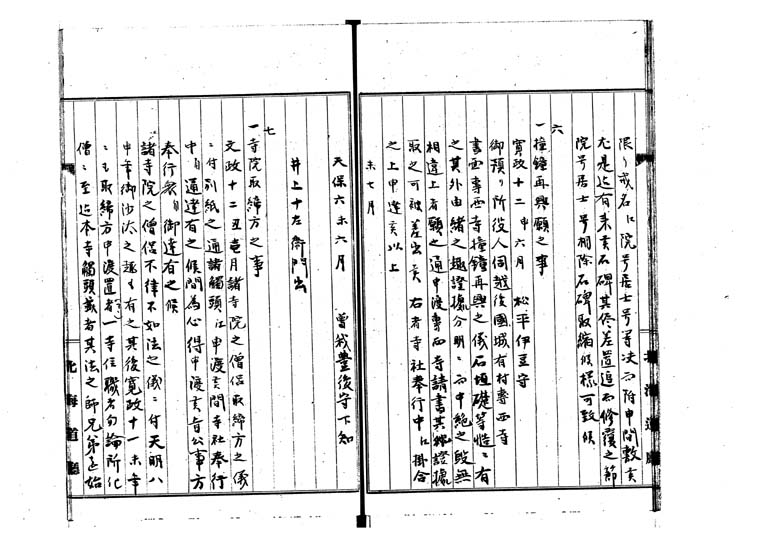 限り戒名江院号居士号等決而附申間敷実
尤是迄有来実石碑其侭差置追而修覆之節
院号居士号相除石碑取縮候様可致候
六
一撞鐘再興願之事
寛政十二申六月 松平伊豆守
御預り所役人伺越後国城有村専西寺
書面専西寺撞鐘再興之儀石垣礎等慥ニ有
之其外由緒之趣証拠分明ニ而中絶之段無
相違上者願之通申渡専西寺請書其外證據
取之可被差出実右者寺社奉行中江掛合
之上申達実以上
未七月
天保六未六月 曽我豊後守下知
井上十左衛門出
七
一寺院取締方之事
文政十二丑七月諸寺院之僧侶取締方之儀
ニ付別紙之通諸觸頭江申渡実間寺社奉行
中ゟ通達有之候間為心得申渡実旨公事方
奉行衆ゟ御達有之候
諸寺院之僧侶不律不如法之儀ニ付天明八
申年御沙汰之趣も有之其後寛政十一未年
ニも取締方申渡置者一寺住職者勿論所化
僧ニ至迄本寺觸頭或者其法之師兄弟を始
北海道廳
北海道廳